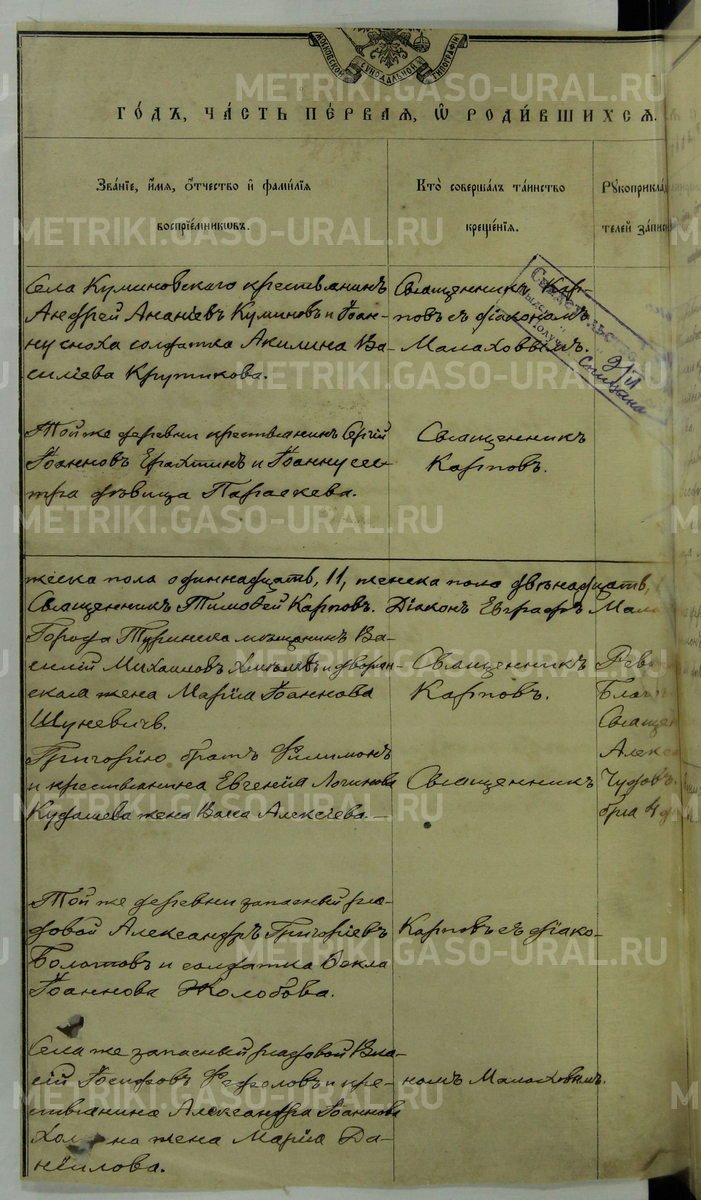 МОСКОВСКОЙ СѴНОДАЛЬНОЙ ТИПОГРАФІИ
METRIKI.GASO-URAL.RU
ГОДЪ, ЧАСТЬ ПЕРВАЯ, Ѡ РОДИВШИХСЯ.
Званіе, имя, отчество и фамилія воспріемниковъ.
Кто совершалъ таинство крещенія.
Рукоприклад
телей записи
Села Куминовскаго крестьянинъ
Андрей Ананіевъ Куминовъ и Іоан-
ну сноха солдатка Акилина Ва-
силіева Крутикова.
Священникъ Кар-
повъ съ діакономъ
Малаховымъ.
Той же деревни крестьянинъ Сергій
Іоанновъ и Іоанну сес-
тра дѣвица Параскева.
Священникъ
Карповъ.
жеска пола одиннадцать, 11, женска пола двѣнадцать,
Священникъ Тимоѳей Карповъ. Діаконъ Евграфъ Мала
Города Туринска мѣщанинъ Ва-
силій Михаиловъ и дворян-
ская жена Марія Іоаннова
Шуневичъ.
Священникъ
Карповъ.
Рев
Благ
Священ
Алекс
Чудов
бря 4 д
Григорію братъ Филимонъ
и крестьянина Евгенія Логинова
Кудашева жена Васса Алексіева.
Священникъ
Той же деревни запасный ря-
довой Александръ Григоріевъ
Болотовъ и солдатка Ѳекла
Іоаннова Жолобова.
Карповъ съ діако-
Села же запасный рядовой Вла-
сій Іосифовъ и кре-
стьянина Александра Іоаннова
жена Марія Да-
ніилова.
номъ Малаховымъ.